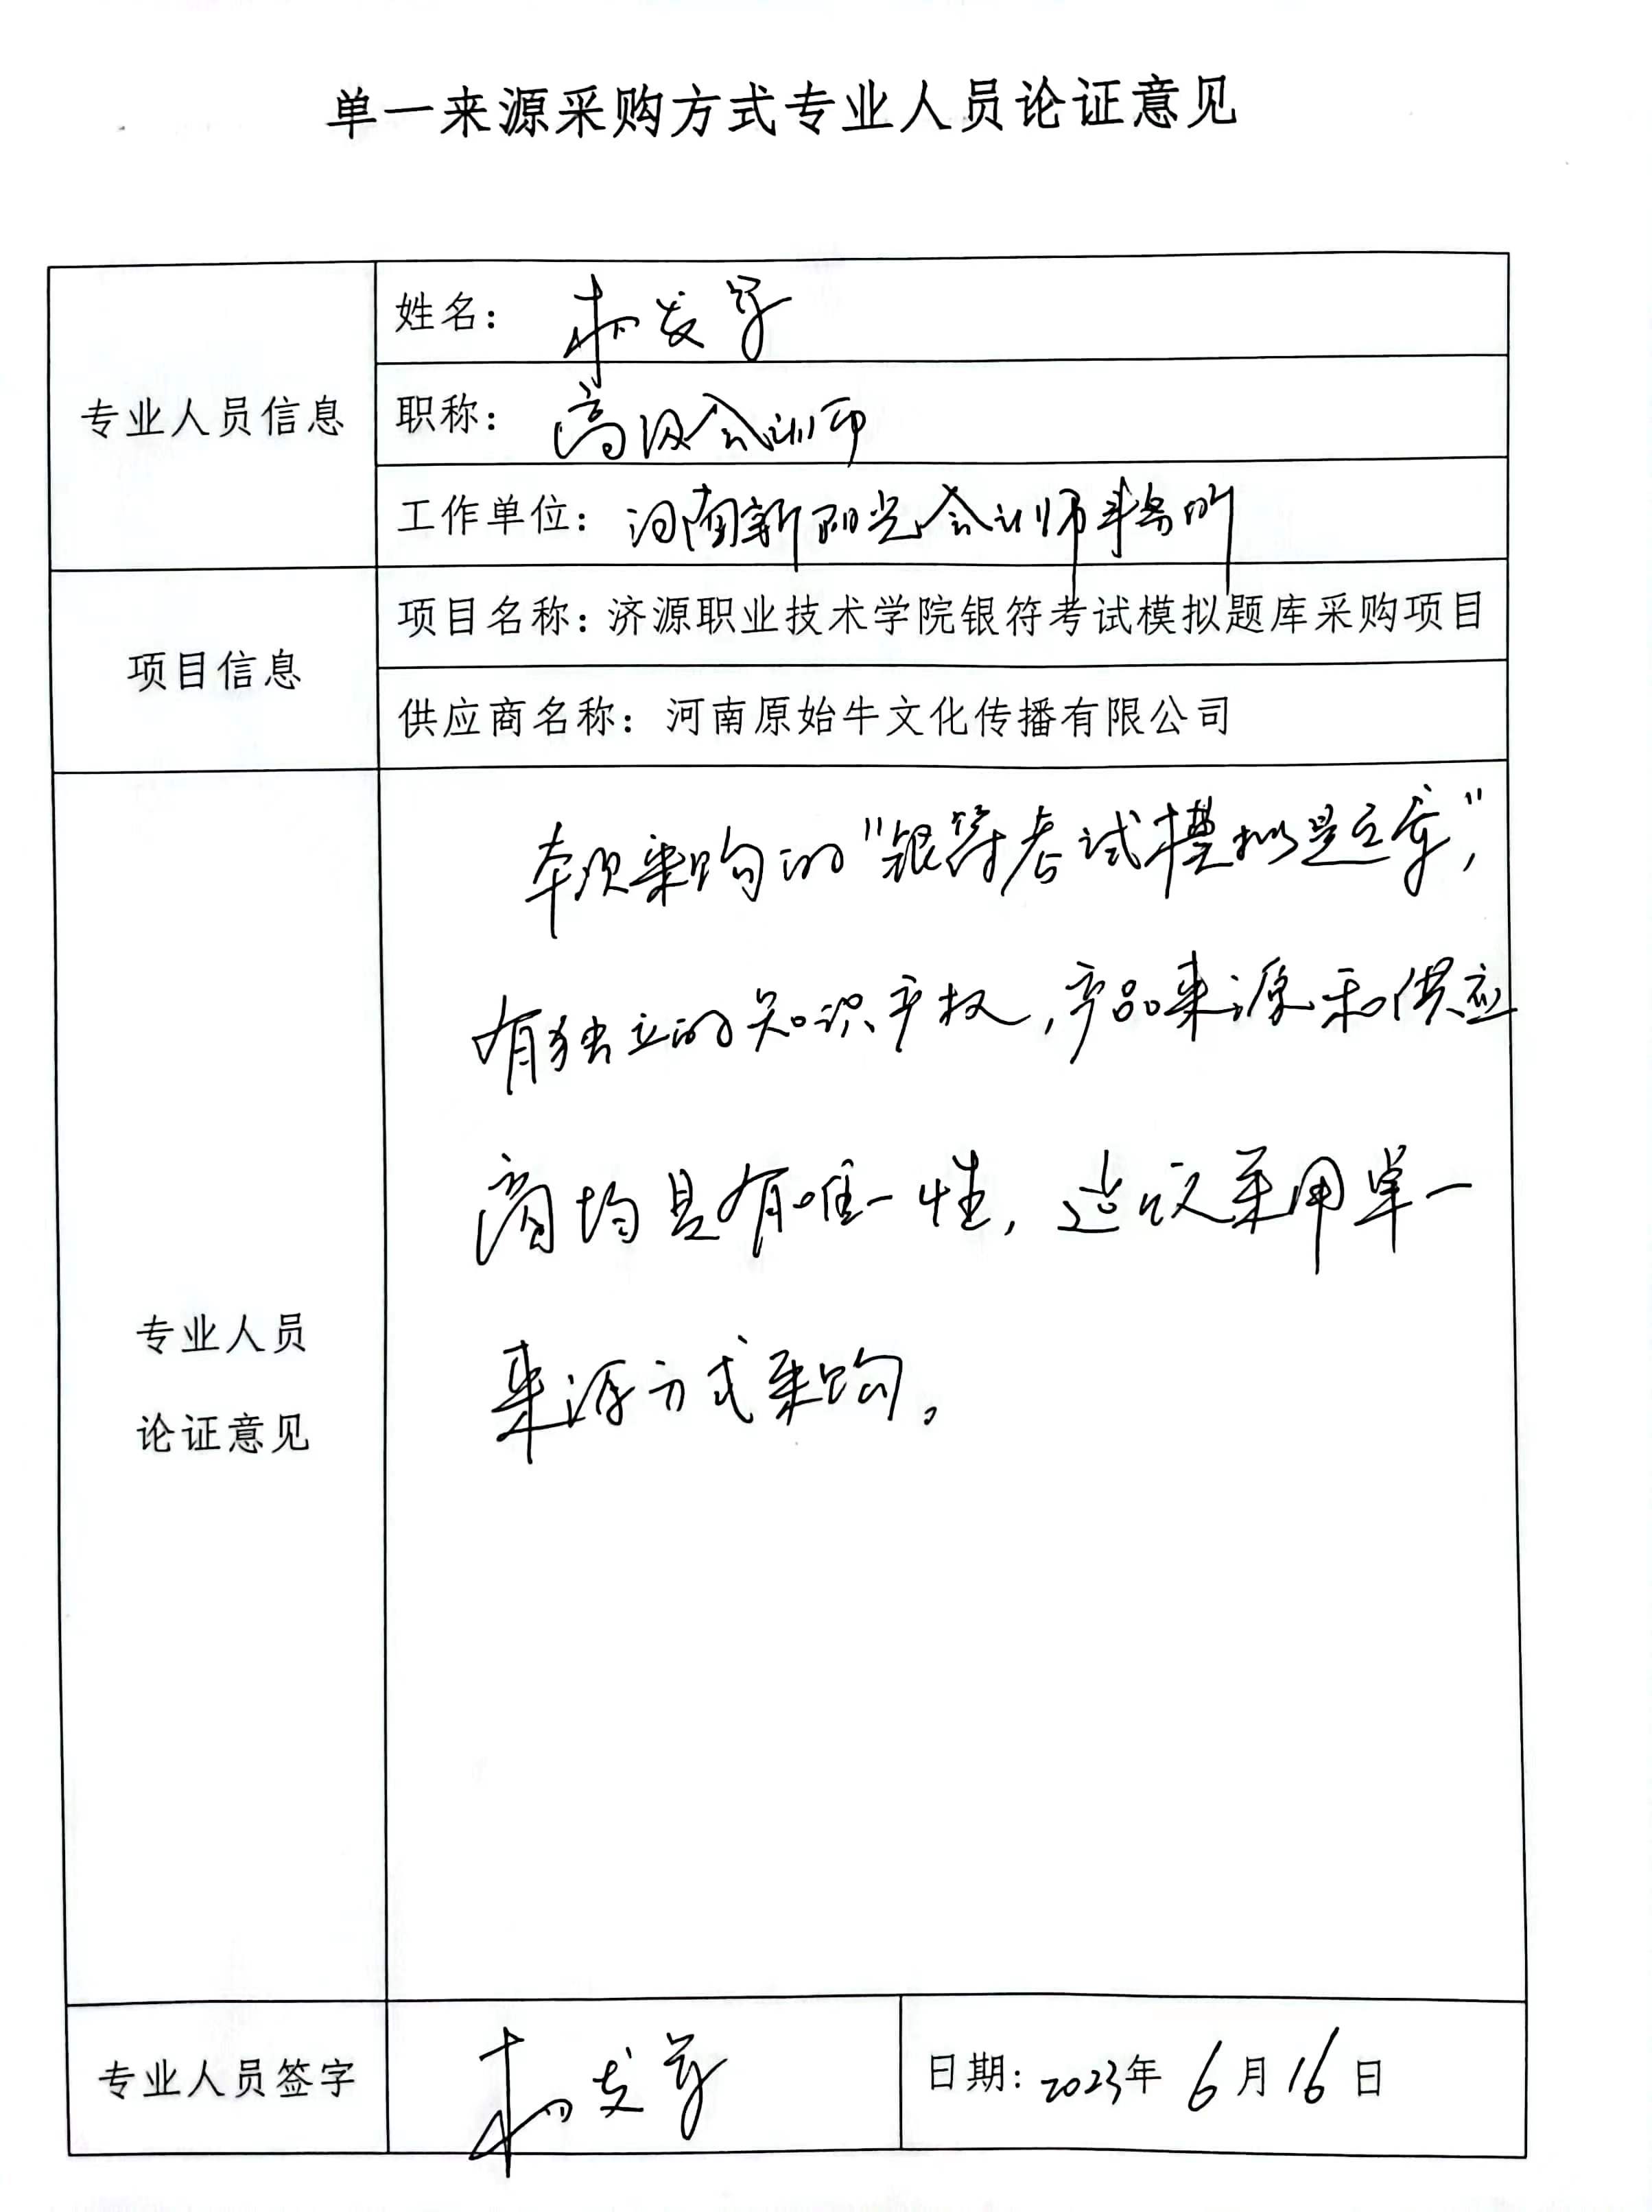 单一来源采购方式专业人员论证意见
专业人员信息
姓名：
职称：高级会计师
工作单位：河南新阳光会计师事务所
项目信息
项目名称：济源职业技术学院银符考试模拟题库采购项目
供应商名称：河南原始牛文化传播有限公司
专业人员
论证意见
本次采购的“银符考试模拟题库”，
有独立的知识产权，产品来源和供应
商均具有唯一性，建议采用单一
来源方式采购。
专业人员签字
日期：2023年6月16日